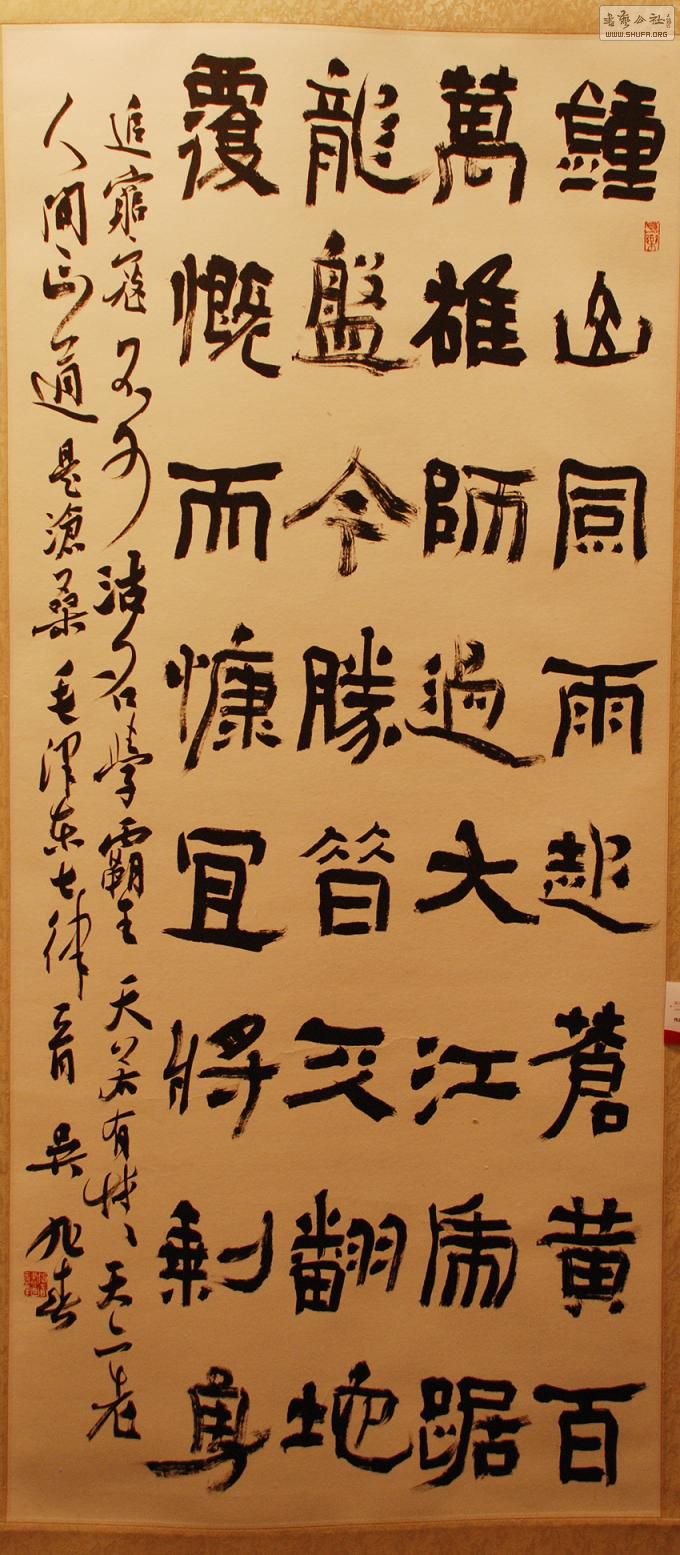 鍾山風雨起蒼黃百
萬雄師過大江虎踞
龍盤今勝昔天翻地
覆慨而慷宜將剩勇
追窮寇不可沽名學霸王天若有情天亦老
人間正道是滄桑毛澤東七律一首吳春
書藝公社
WWW.SHUFA.ORG